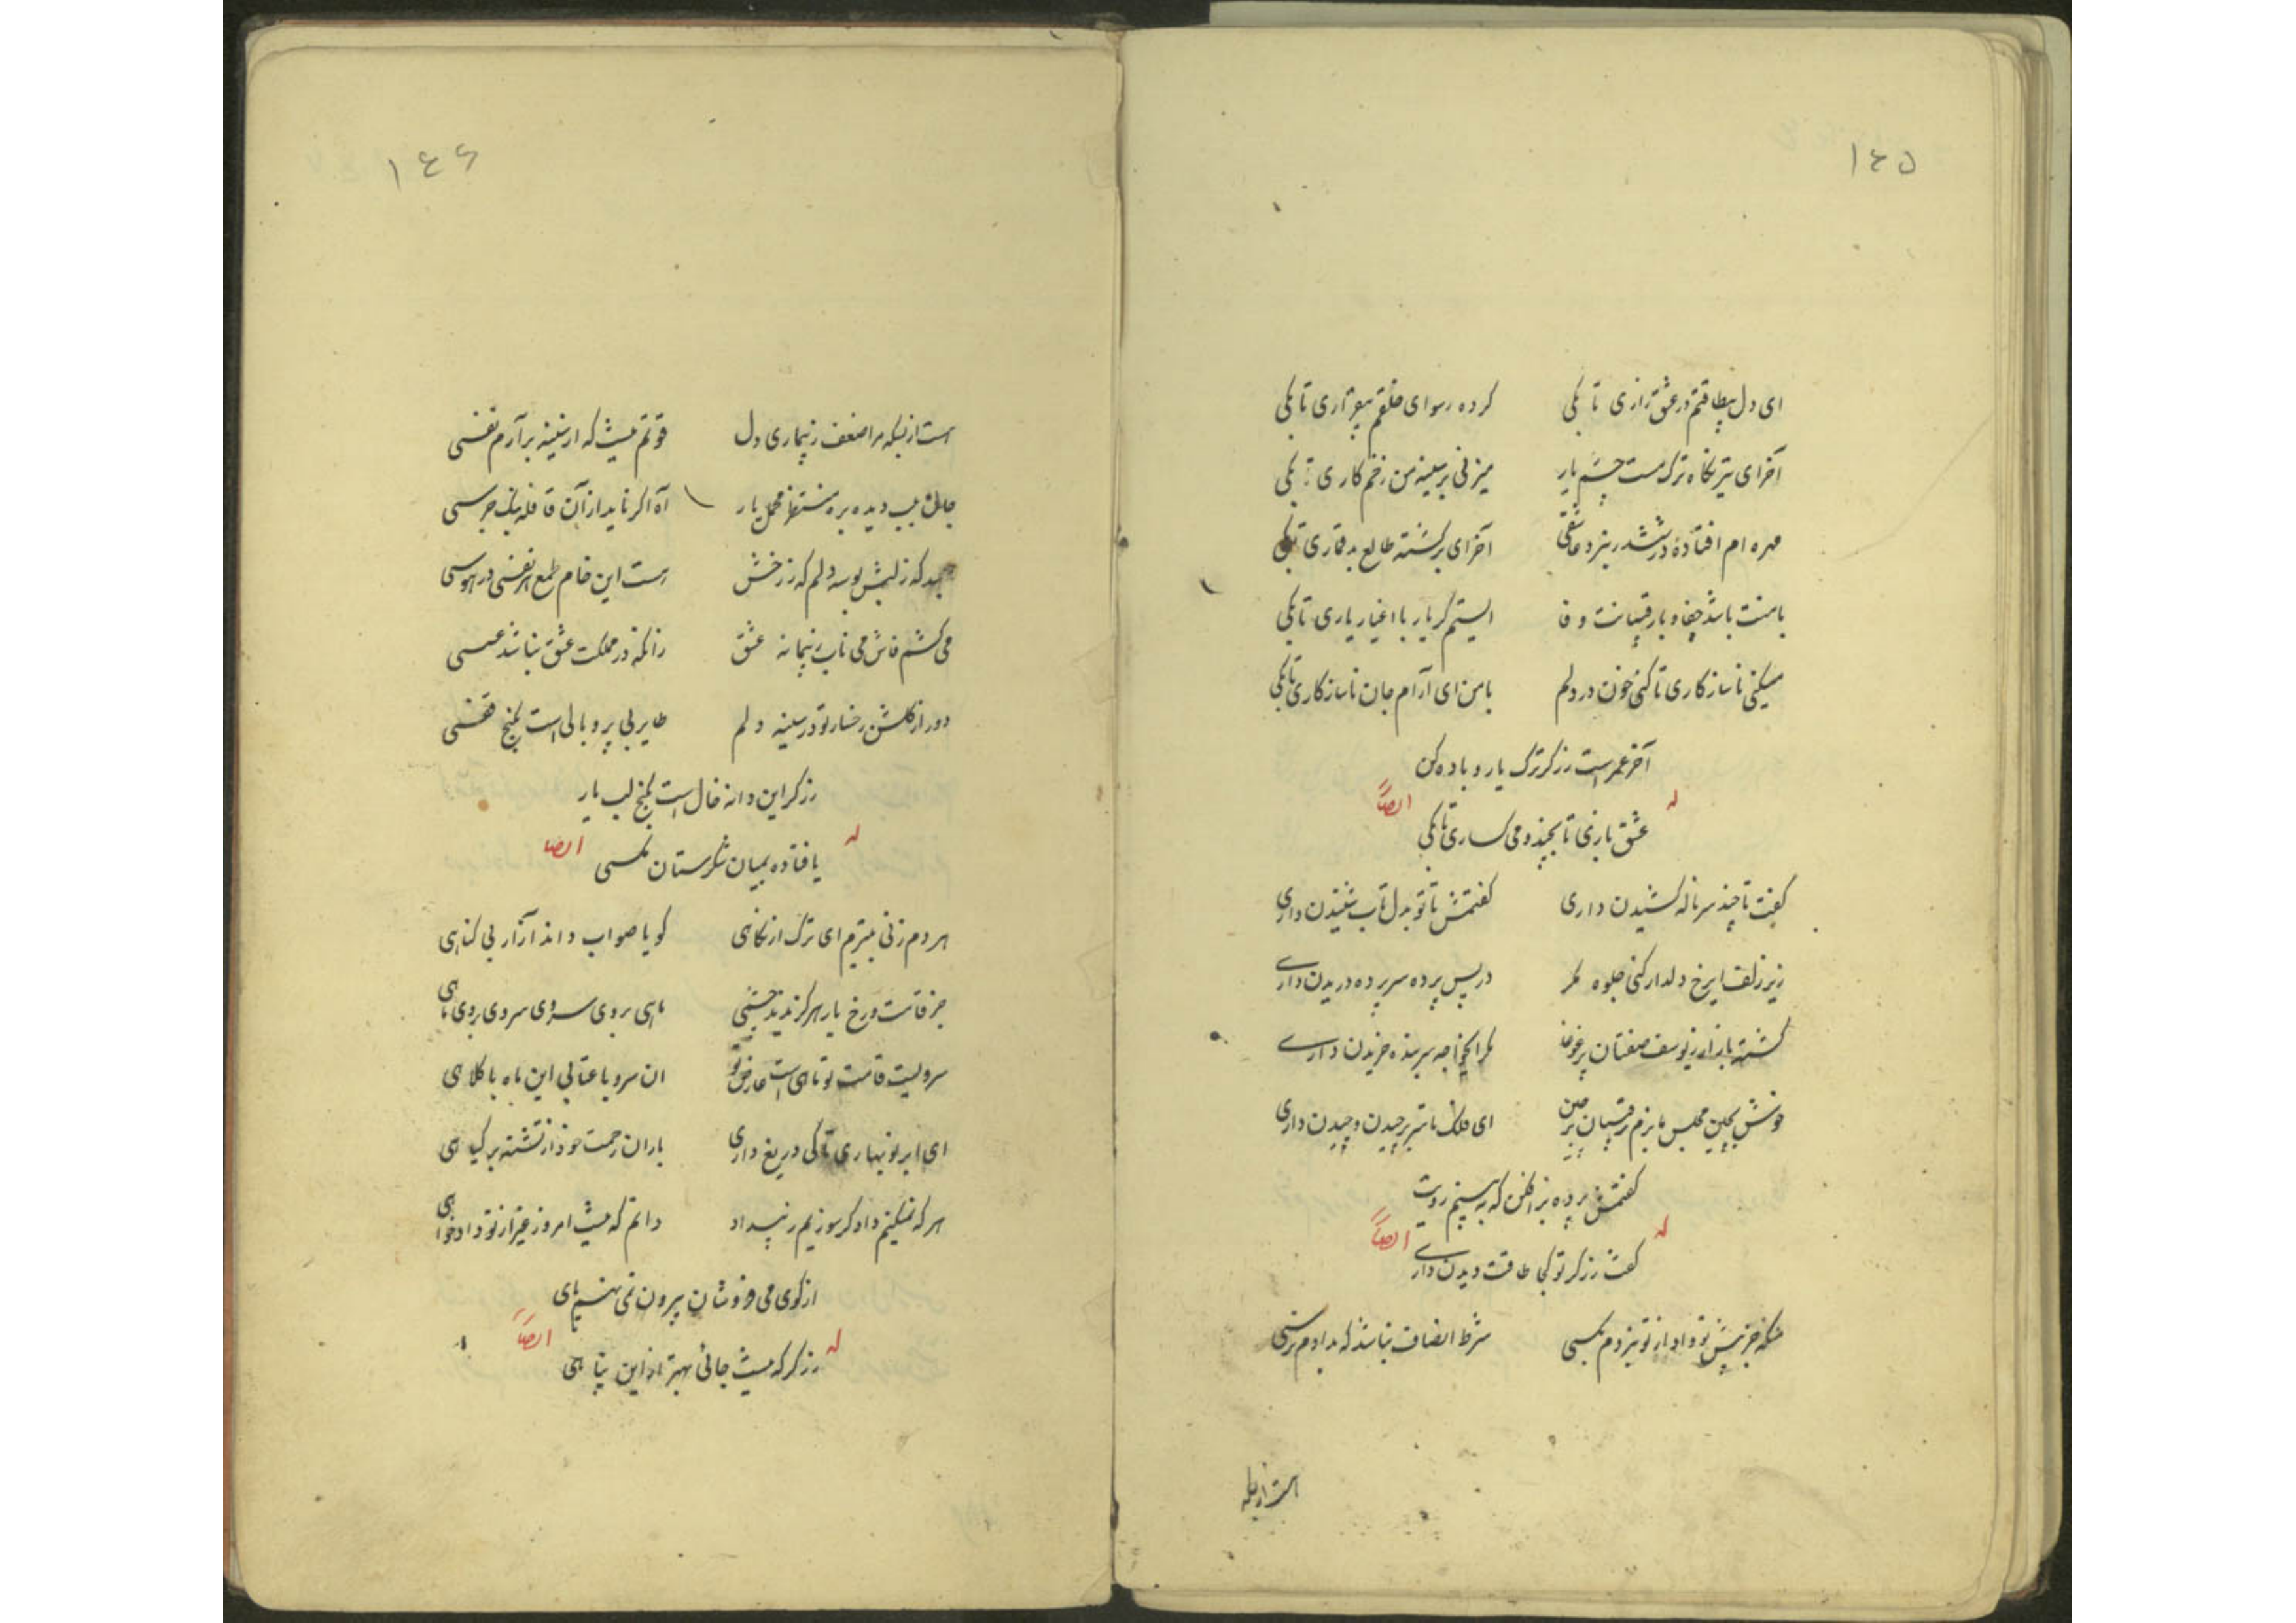 ۱۴۵
ای دل بیطاقتم در عشق زاری تا بکی کرده رسوای خلقم بیقراری تا بکی
آخر ای تیر نگاه ترک مست چشم یار میزنی بر سینه من زخم کاری تا بکی
مهره ام افتاده در ششدر بنرد عاشقی آخر ای برگشته طالع بدقماری تا بکی
با منت باشد جفا و با رقیبانت وفا ای ستمگر یار با اغیار یاری تا بکی
میکنی ناسازکاری تا کنی خون در دلم با من ای آرام جان ناسازکاری تا بکی
آخر عمر است زرگر ترک یار و باده کن
له ایضاً
عشق بازی تا بچند و می کساری تا بکی
گفت تا چند سر ناله کشیدن داری گفتمش تا تو بدل تاب شنیدن داری
زیر زلف ای رخ دلدار کنی جلوه مگر در پس پرده سر پرده دریدن داری
گشته بازار ز یوسف صفتان پر غوغا مگر ای خواجه سر بنده خریدن داری
خوش بچین مجلس ما بزم رقیبان برچین ای فلک تا سر برچیدن و چیدن داری
گفتمش پرده برافکن که ببینم رویت
له ایضاً
گفت زرگر تو کجا طاقت دیدن داری
منکه جز پیش تو داد از تو نبردم بکسی شرط انصاف نباشد که بدادم نرسی
است از بسکه
۱۴۶
است از بسکه مرا ضعف ز بیماری دل قوتم نیست که از سینه برآرم نفسی
جان بلب دیده بره منتظر محمل یار آه اگر ناید از آن قافله بانگ جرسی
که ز لبش بوسه دلم که ز رخش است این خام طمع هر نفسی در هوسی
می کشم فاش می ناب ز پیمانه عشق زانکه در مملکت عشق نباشد عسسی
دور از گلشن رخسار تو در سینه دلم طایر بی پر و بالی است بکنج قفسی
زرگر این دانه خال است بکنج لب یار
له ایضا
یا فتاده بمیان شکرستان مکسی
هر دم زنی بتیرم ای ترک از نگاهی گویا صواب داند آزار بی گناهی
جز قامت و رخ یار هرگز ندید چشمی ماهی بروی سروی سروی بروی ماهی
سرویست قامت تو ماهی است عارض تو ان سرو با قبائی این ماه با کلاهی
ای ابر نوبهاری تا کی دریغ داری باران رحمت خود از تشنه برگیاهی
هر که تمکینم داد گر سوزیم ز بیداد دانم که نیست امروز غیر از تو دادخواهی
از کوی می فروشان بیرون نمی نهم پای
له ایضاً
زرگر که نیست جائی بهتر از این پناهی